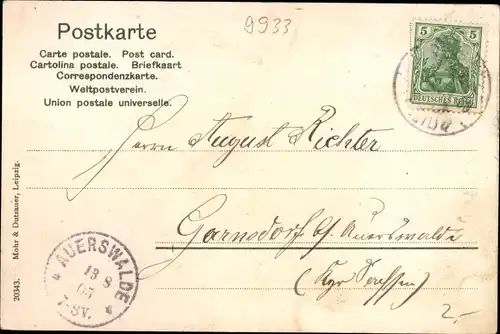 9933
Postkarte
Carte postale. Post card.
Cartolina postale. Briefkaart
Correspondenzkarte.
Weltpostverein.
Union postale universelle.
5 5
DEUTSCHES REICH
Herrn August Richter
Garnsdorf b/ Auerswalde
(Kgr Sachsen)
AUERSWALDE
13 8
05
7-8V.
20343. Mohr & Dutzauer, Leipzig.
2.-